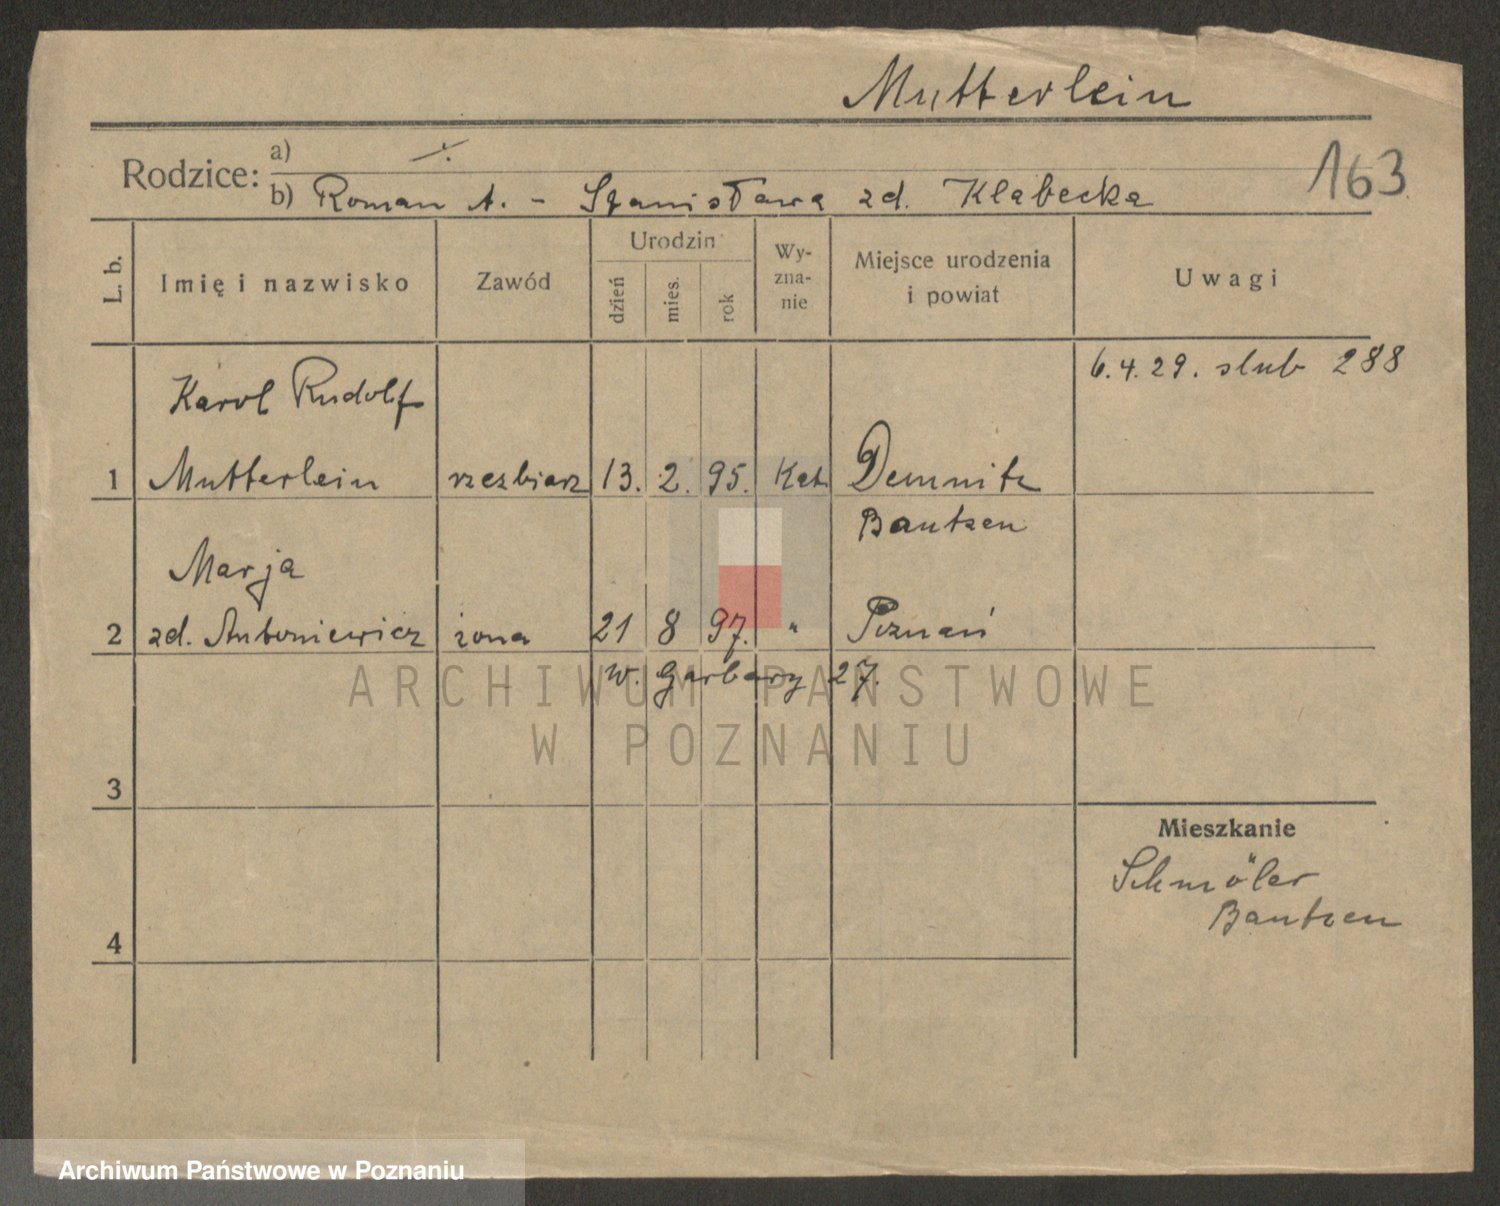 Mutterlein
163
Rodzice: a) ·/.
b) Roman A. - Stanisława zd. Klabecka
L. b. Imię i nazwisko Zawód Urodzin dzień mies. rok Wy-zna-nie Miejsce urodzenia i powiat Uwagi
6.4.29. slub 288
Karol Rudolf
1 Mutterlein rzezbiarz 13. 2. 95. Kat. Demnitz
Bautzen
Marja
2 zd. Antoniewicz żona 21 8 97. " Poznań
w. Garbary 27.
ARCHIWUM PAŃSTWOWE
W POZNANIU
3
Mieszkanie
Schmöler
Bautzen
4
Archiwum Państwowe w Poznaniu